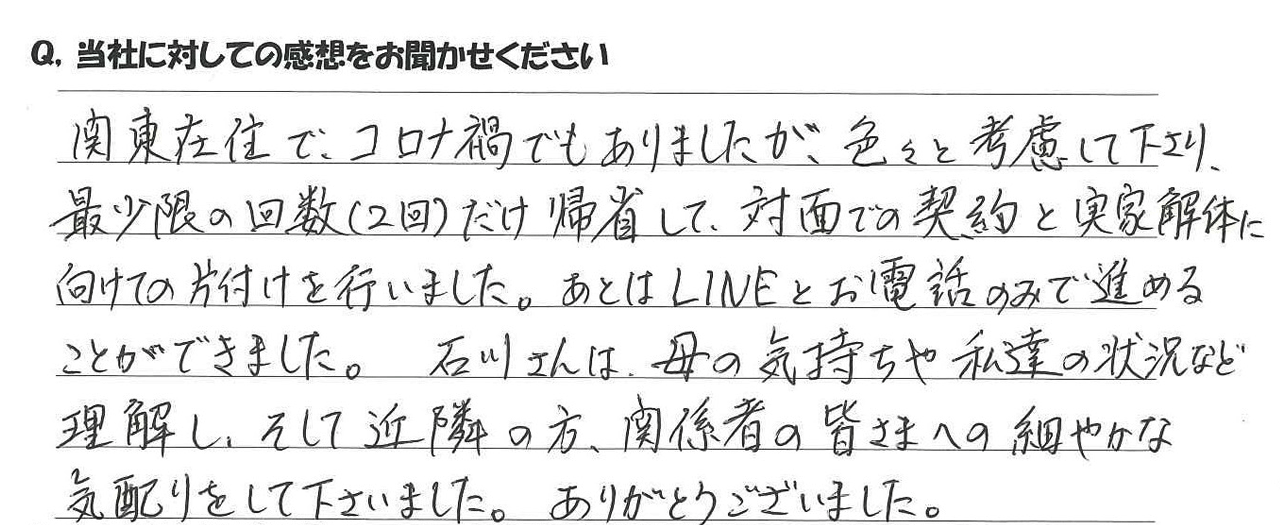 Q. 当社に対しての感想をお聞かせください
関東在住で、コロナ禍でもありましたが、色々と考慮して下さり、
最少限の回数(2回)だけ帰省して、対面での契約と実家解体に
向けての片付けを行いました。あとはLINEとお電話のみで進める
ことができました。 石川さんは、母の気持ちや私達の状況など
理解し、そして近隣の方、関係者の皆さまへの細やかな
気配りをして下さいました。 ありがとうございました。